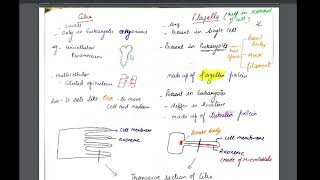 Cilia
Flagella (present in bacterial cell)
→ small
→ long
→ Only in Eukaryotic organisms
→ Present in Single Cell
eg → Unicellular
Paramecium
→ Present in Prokaryotes
Basal Body
Hook
filament
made up of flagellin protein
multicellular
Ciliated epithelium
→ Present in Eukaryotes
→ It acts like Oar to move
Cell and medium
→ differ in structure
→ made up of tubulin protein
Cell membrane
Axoneme
basal body
Cell membrane
Axoneme
(Made of Microtubules)
Transverse section of Cilia